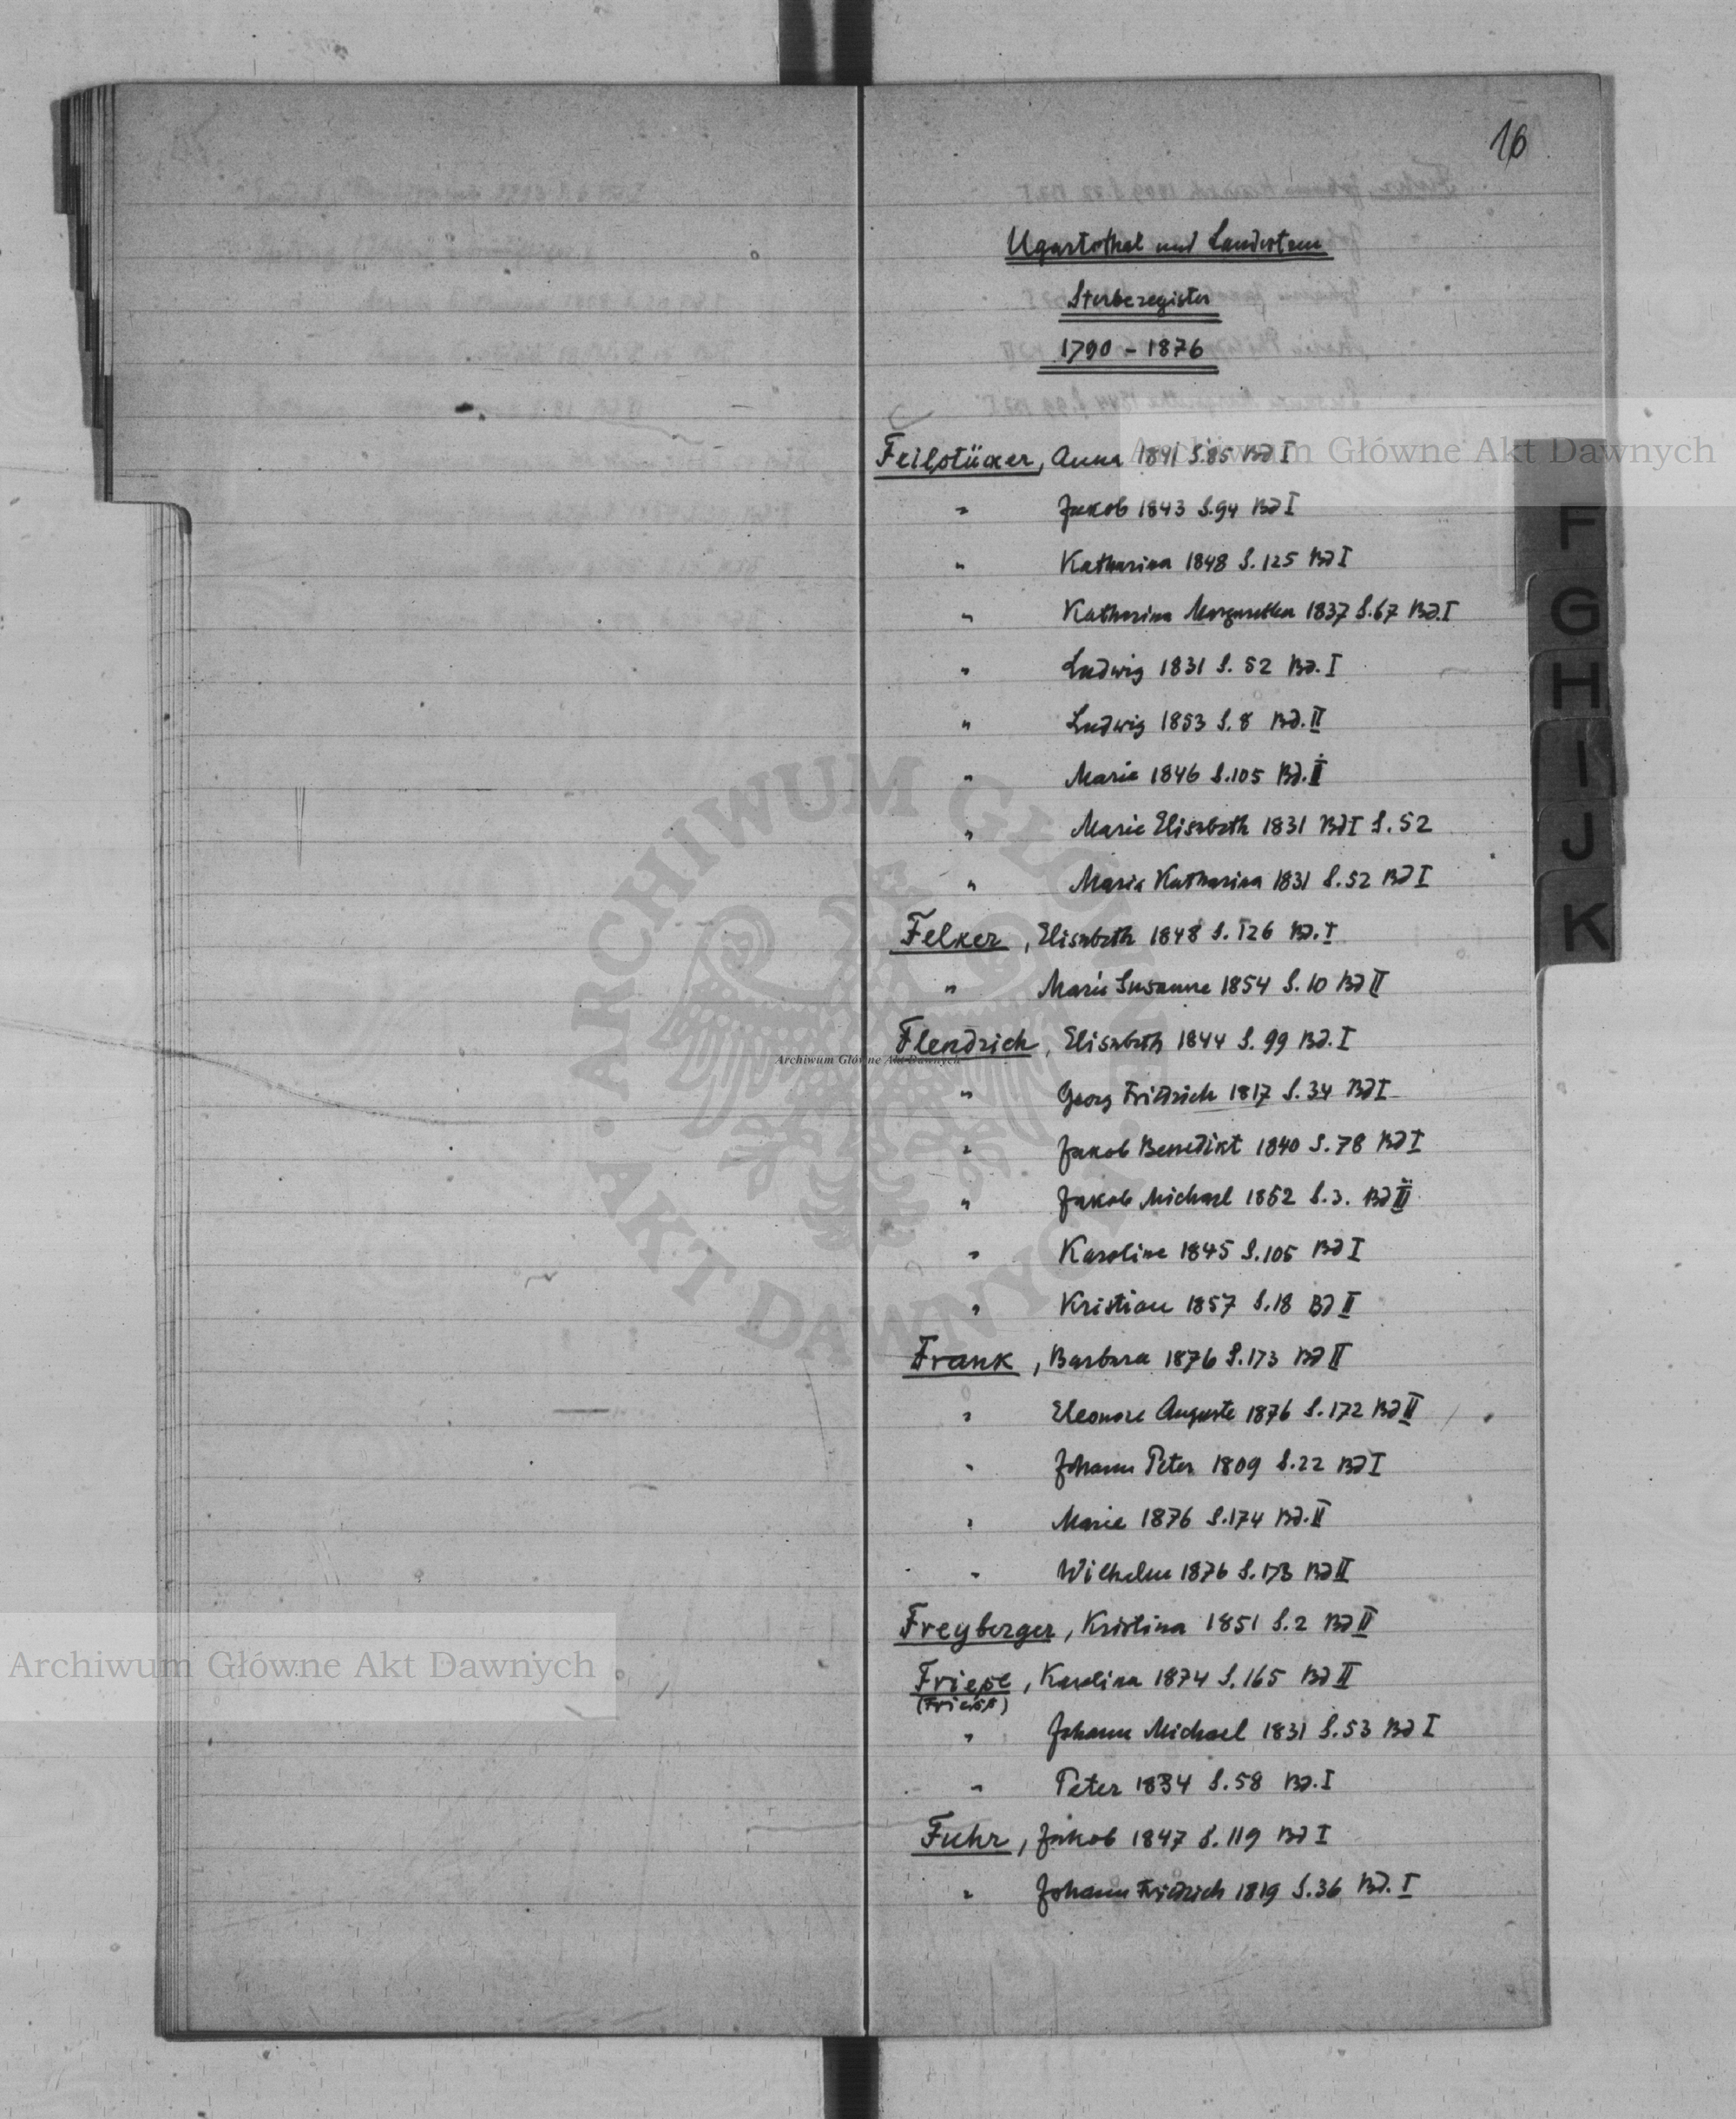 16
Ugartsthal und Landestreu
Sterberegister
1790 - 1876
Feilstücker, Anna 1841 S.85 Bd I
" Jakob 1843 S.94 Bd I
" Katharina 1848 S.125 Bd I
" Katharina Margaretha 1837 S.67 Bd.I
" Ludwig 1831 S. 52 Bd. I
" Ludwig 1853 S. 8 Bd. II
" Marie 1846 S.105 Bd. I
" Marie Elisabeth 1831 Bd I S. 52
" Maria Katharina 1831 S.52 Bd I
Felker, Elisabeth 1848 S. 126 Bd. I
" Marie Susanne 1854 S. 10 Bd II
Flendrich, Elisabeth 1844 S. 99 Bd. I
" Georg Friedrich 1817 S. 34 Bd I
" Jakob Benedikt 1840 S. 78 Bd I
" Jakob Michael 1852 S. 3. Bd II
" Karoline 1845 S.105 Bd I
" Kristian 1857 S.18 Bd II
Frank, Barbara 1876 S.173 Bd II
" Eleonore Auguste 1876 S.172 Bd II
" Johann Peter 1809 S.22 Bd I
" Marie 1876 S.174 Bd. II
" Wilhelm 1876 S.173 Bd II
Freyberger, Kristina 1851 S.2 Bd II
Friese, Karolina 1874 S. 165 Bd II
" Johann Michael 1831 S. 53 Bd I
" Peter 1834 S. 58 Bd. I
Fuhr, Jakob 1847 S. 119 Bd I
" Johann Friedrich 1819 S.36 Bd. I
F
G
H
I
J
K
Archiwum Główne Akt Dawnych
Archiwum Główne Akt Dawnych
Archiwum Główne Akt Dawnych
ARCHIWUM GŁÓWNE AKT DAWNYCH